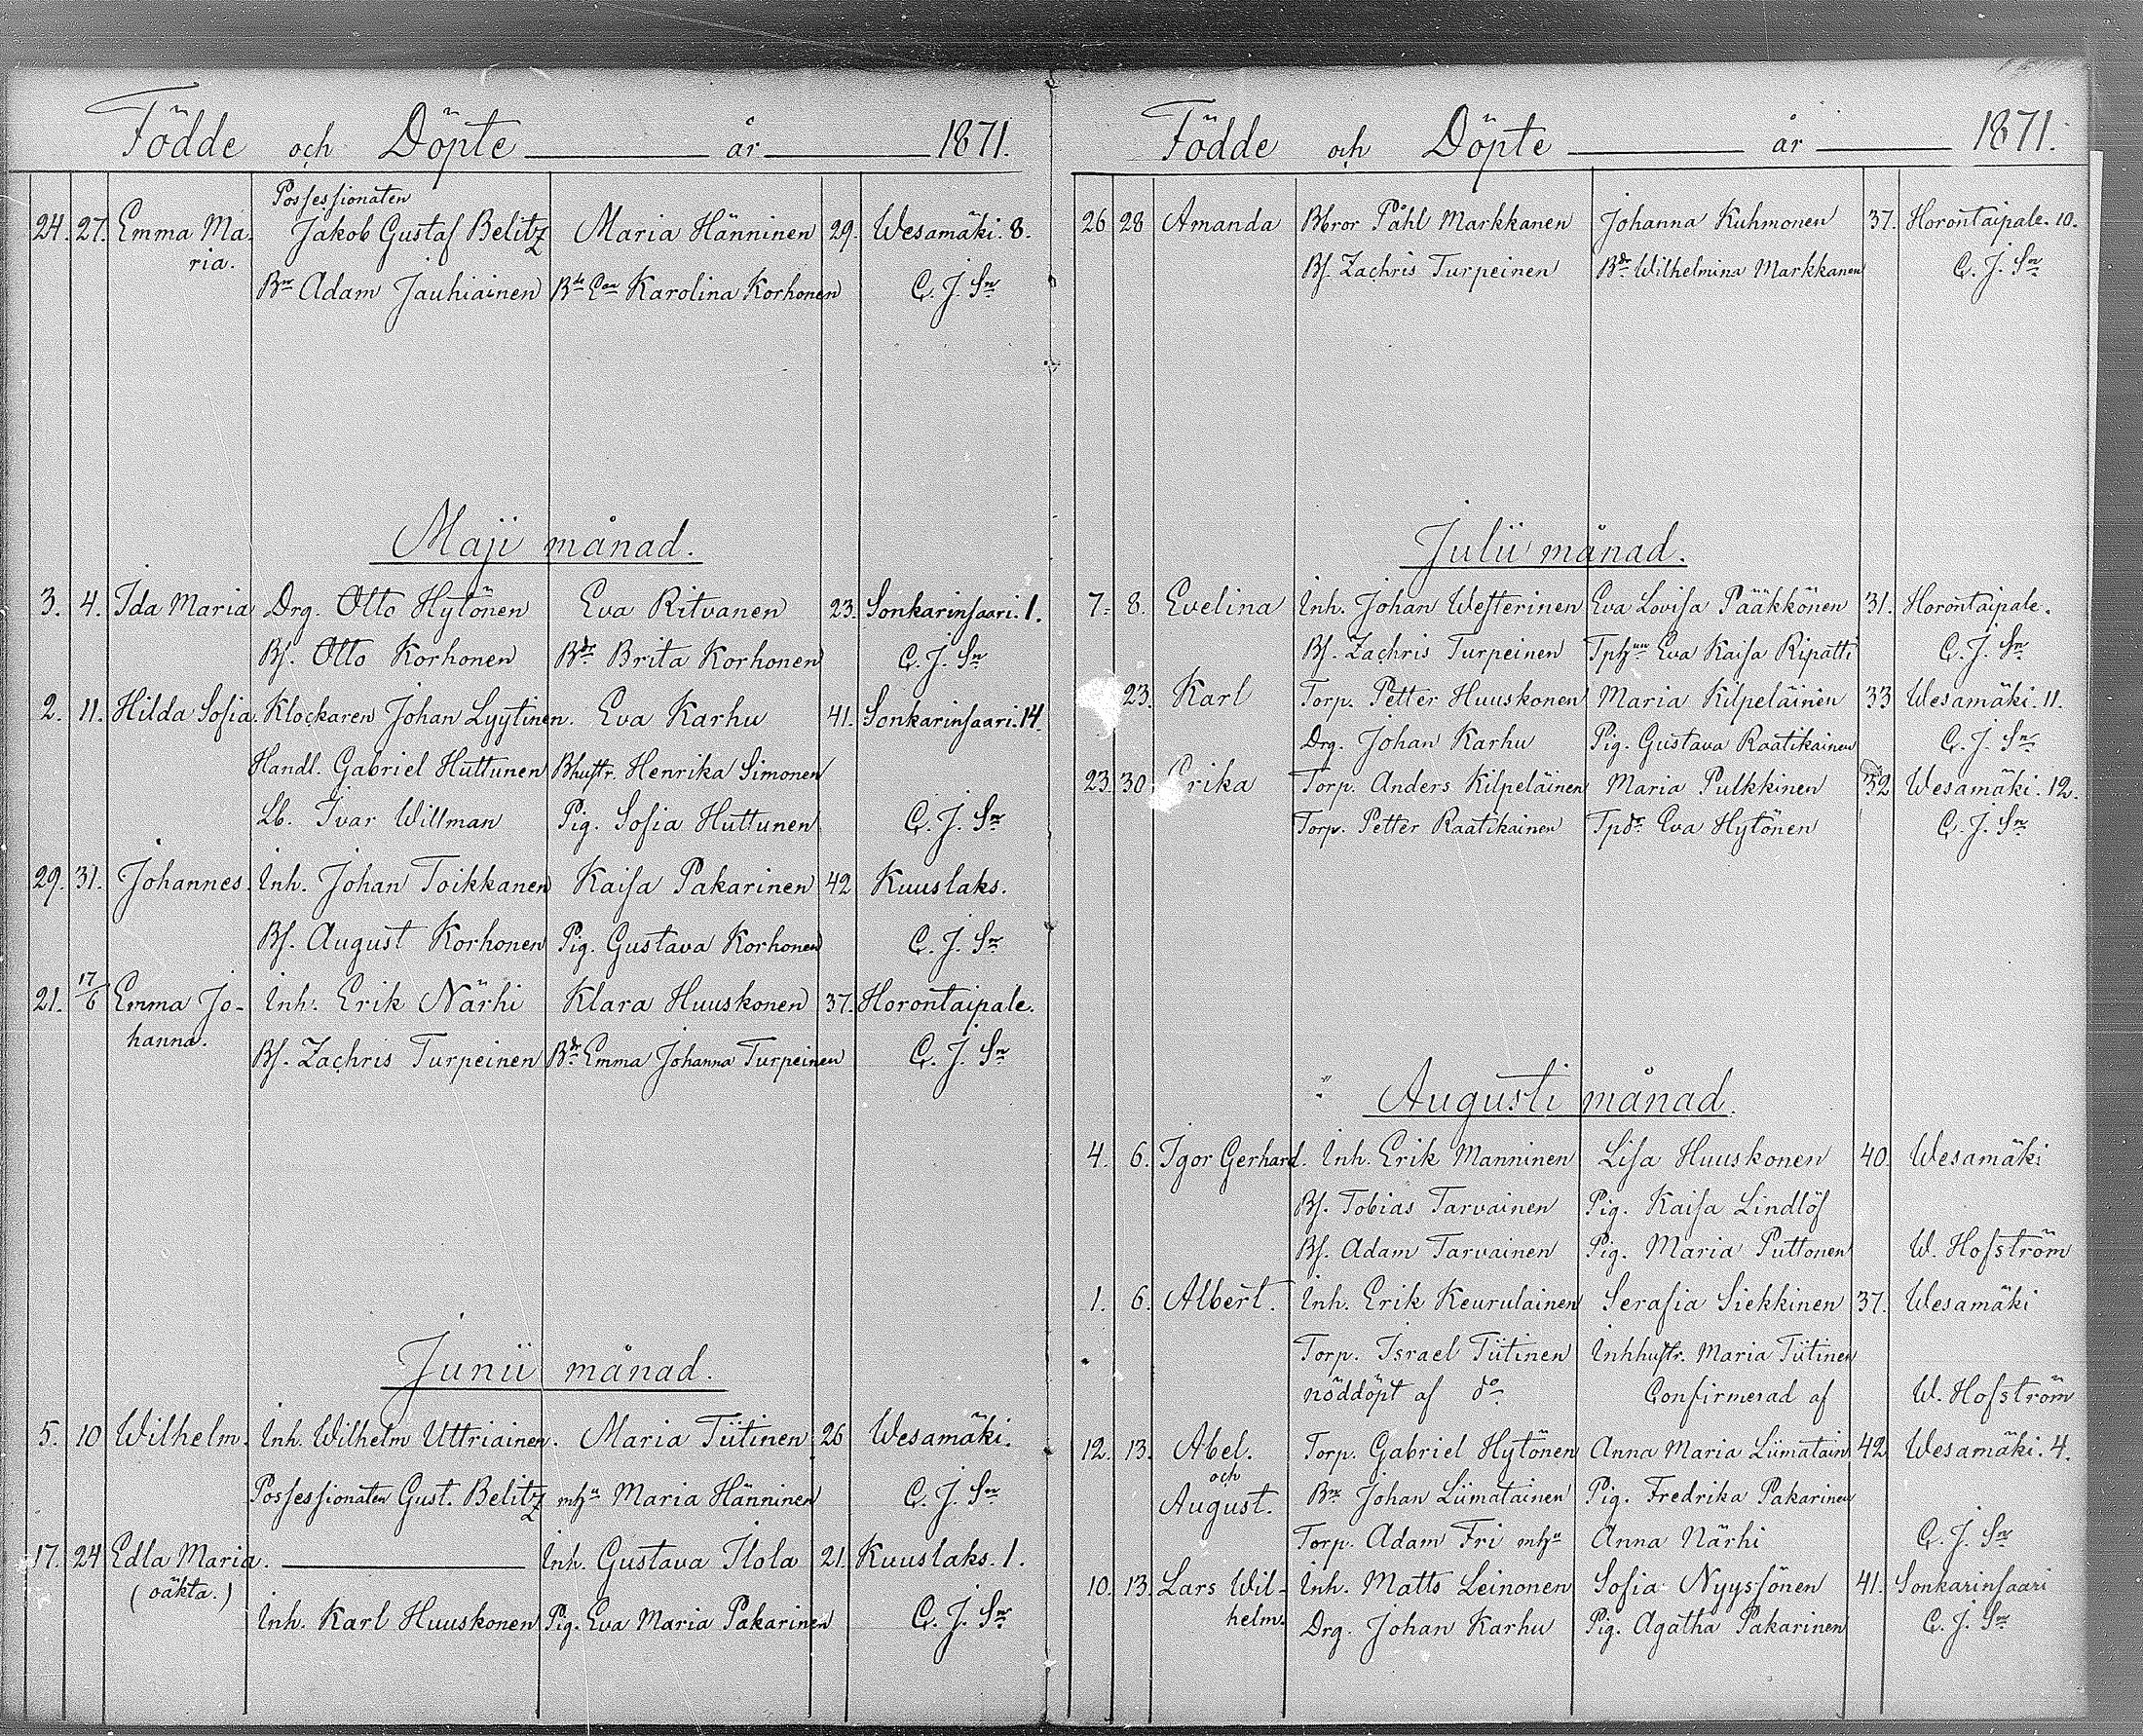 Födde och Döpte år 1871.
Possessionaten
24. 27. Emma Ma- Jakob Gustaf Belitz Maria Hänninen 29. Wesamäki. 8.
ria.
Bn Adam Jauhiainen Bde Enn Karolina Korhonen C. J. Sn
Maji månad.
3. 4. Ida Maria Drg. Otto Hytönen Eva Ritvanen 23. Sonkarinsaari. 1.
Bs. Otto Korhonen Bdr Brita Korhonen C. J. Sn
2. 11. Hilda Sofia. Klockaren Johan Lyytinen. Eva Karhu 41. Sonkarinsaari. 14.
Handl. Gabriel Huttunen Bhustr. Henrika Simonen
Lb. Ivar Willman Pig. Sofia Huttunen C. J. Sn
29. 31. Johannes. Inh. Johan Toikkanen Kaisa Pakarinen 42 Kuuslaks.
Bs. August Korhonen Pig. Gustava Korhonen C. J. Sn
21. 17/6 Emma Jo- Inh. Erik Närhi Klara Huuskonen 37. Horontaipale.
hanna. Bs. Zachris Turpeinen Bdr Emma Johanna Turpeinen C. J. Sn
Junii månad.
5. 10 Wilhelm. Inh. Wilhelm Uttriainen. Maria Tiitinen 26 Wesamäki.
Possessionaten Gust. Belitz mhu Maria Hänninen C. J. Sn
17. 24 Edla Maria. Inh. Gustava Ilola 21. Kuuslaks. 1.
(oäkta.)
Inh. Karl Huuskonen Pig. Eva Maria Pakarinen C. J. Sn
Födde och Döpte år 1871.
26 28 Amanda Bbror Påhl Markkanen Johanna Kuhmonen 37. Horontaipale. 10.
Bs. Zachris Turpeinen Bdr Wilhelmina Markkanen C. J. Sn
Julii månad.
7. 8. Evelina Inh. Johan Westerinen Eva Lovisa Pääkkönen 31. Horontaipale.
Bs. Zachris Turpeinen Eva Kaisa Ripatti C. J. Sn
23. Karl Torp. Petter Huuskonen Maria Kilpeläinen 33 Wesamäki. 11.
Drg. Johan Karhu Pig. Gustava Raatikainen C. J. Sn
23. 30. Erika Torp. Anders Kilpeläinen Maria Pulkkinen 32 Wesamäki. 12.
Torp. Petter Raatikainen Tpdr Eva Hytönen C. J. Sn
Augusti månad.
4. 6. Igor Gerhard. Inh. Erik Manninen Lisa Huuskonen 40. Wesamäki
Bs. Tobias Tarvainen Pig. Kaisa Lindlöf
Bs. Adam Tarvainen Pig. Maria Puttonen W. Hofström
1. 6. Albert. Inh. Erik Keurulainen Serafia Siekkinen 37. Wesamäki
Torp. Israel Tiitinen Inhhustr. Maria Tiitinen
nöddöpt af do Confirmerad af W. Hofström
12. 13. Abel. Torp. Gabriel Hytönen Anna Maria Liimatain 42 Wesamäki. 4.
och
August. Bn Johan Liimatainen Pig. Fredrika Pakarinen
Torp. Adam Fri mhu Anna Närhi C. J. Sn
10. 13. Lars Wil- Inh. Matts Leinonen Sofia Nyyssönen 41. Sonkarinsaari
helm. Drg. Johan Karhu Pig. Agatha Pakarinen C. J. Sn